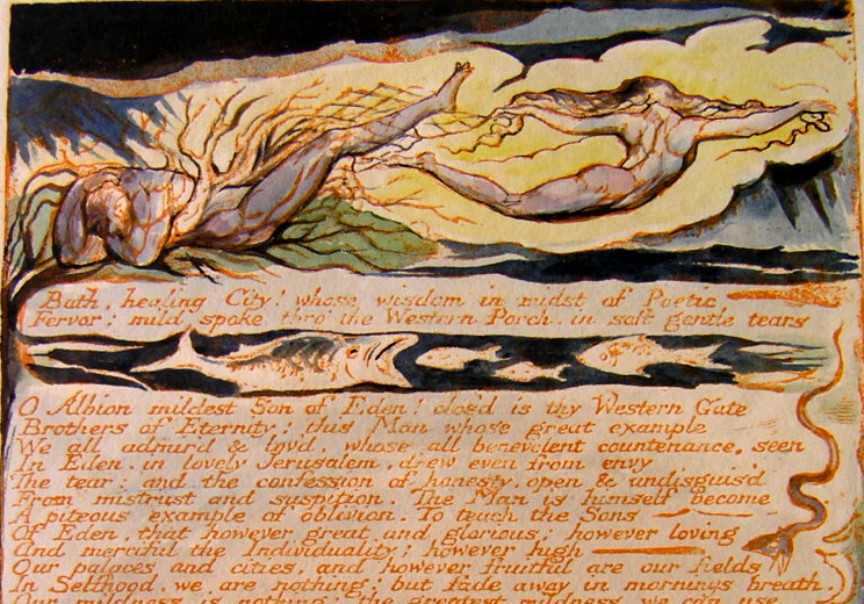 Bath, healing City! whose wisdom in midst of Poetic
Fervor: mild spoke thro' the Western Porch, in soft gentle tears
O Albion mildest Son of Eden! clos'd is thy Western Gate
Brothers of Eternity! this Man whose great example
We all admir'd & lov'd, whose all benevolent countenance, seen
In Eden, in lovely Jerusalem, drew even from envy
The tear: and the confession of honesty, open & undisguis'd
From mistrust and suspition. The Man is himself become
A piteous example of oblivion. To teach the Sons
Of Eden, that however great and glorious; however loving
And merciful the Individuality; however high
Our palaces and cities, and however fruitful are our fields
In Selfhood, we are nothing: but fade away in mornings breath.
Our mildness is nothing: the greatest mildness we can use